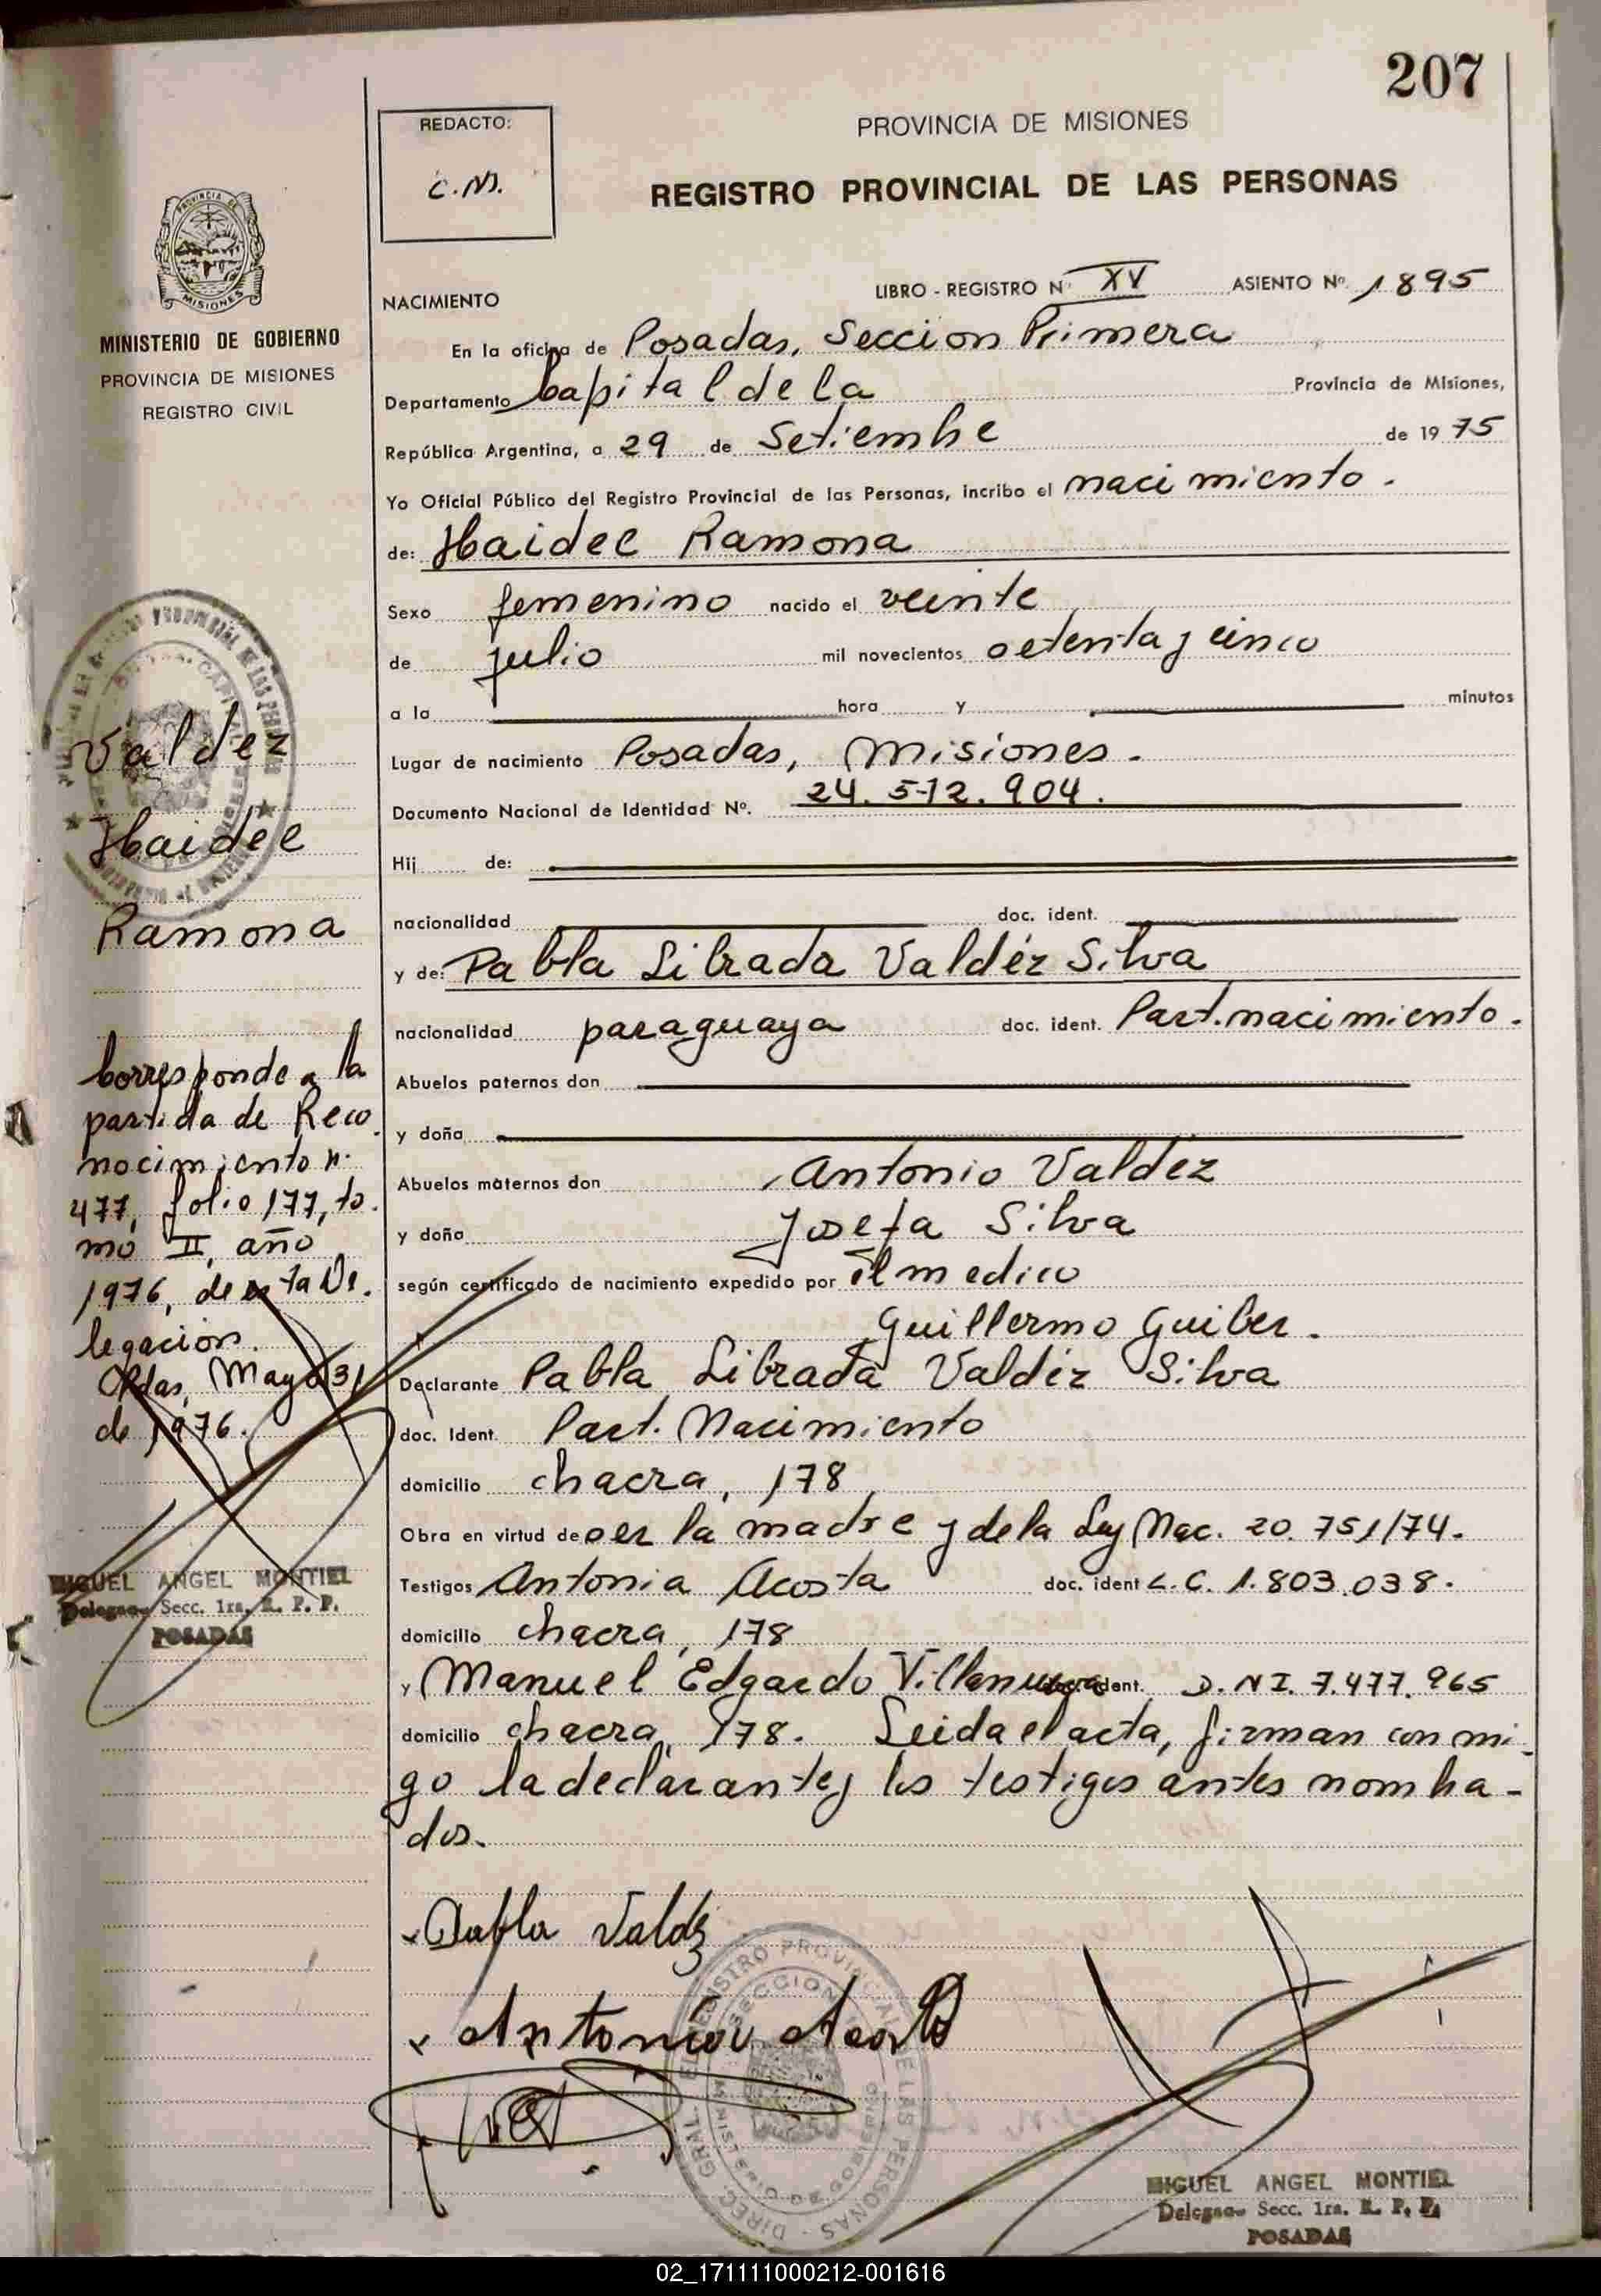 207
REDACTO:
C.M.
PROVINCIA DE MISIONES
REGISTRO PROVINCIAL DE LAS PERSONAS
PROVINCIA DE
MISIONES
MINISTERIO DE GOBIERNO
PROVINCIA DE MISIONES
REGISTRO CIVIL
NACIMIENTO
LIBRO - REGISTRO Nº XV ASIENTO Nº 1895
En la oficina de Posadas, Seccion Primera
Departamento Capital de la Provincia de Misiones,
República Argentina, a 29 de Setiembre de 1975
Yo Oficial Público del Registro Provincial de las Personas, incribo el nacimiento.
de: Haidee Ramona
Sexo femenino nacido el veinte
de julio mil novecientos setenta y cinco
a la hora y minutos
Lugar de nacimiento Posadas, Misiones.
Documento Nacional de Identidad Nº. 24.512.904.
Hij de:
nacionalidad doc. ident.
y de: Pabla Librada Valdéz Silva
nacionalidad paraguaya doc. ident. Part. nacimiento.
Abuelos paternos don
y doña
Abuelos maternos don Antonio Valdéz
y doña Josefa Silva
según certificado de nacimiento expedido por el medico
Guillermo Guiber.
Declarante Pabla Librada Valdéz Silva
doc. Ident. Part. Nacimiento
domicilio chacra, 178
Obra en virtud de ser la madre y de la Ley Nac. 20.751/74.
Testigos Antonia Acosta doc. ident L.C. 1.803.038.
domicilio chacra, 178
y Manuel Edgardo Villanueva ident. D.N.I. 7.477.965
domicilio chacra, 178. Leida el acta, firman con mi-
go la declarante y los testigos antes nombra-
dos.
Valdez
Haidee
Ramona
Corresponde a la
partida de Reco
nocimiento n.
477, folio 177, to-
mo II, año
1976, de esta De-
legación.
Pdas, Mayo 31
de 1976.
MIGUEL ANGEL MONTIEL
Delegado Secc. 1ra. R. P. P.
POSADAS
Pabla Valdez
Antonia Acosta
MIGUEL ANGEL MONTIEL
Delegado Secc. 1ra. R. P. P.
POSADAS
02_171111000212-001616